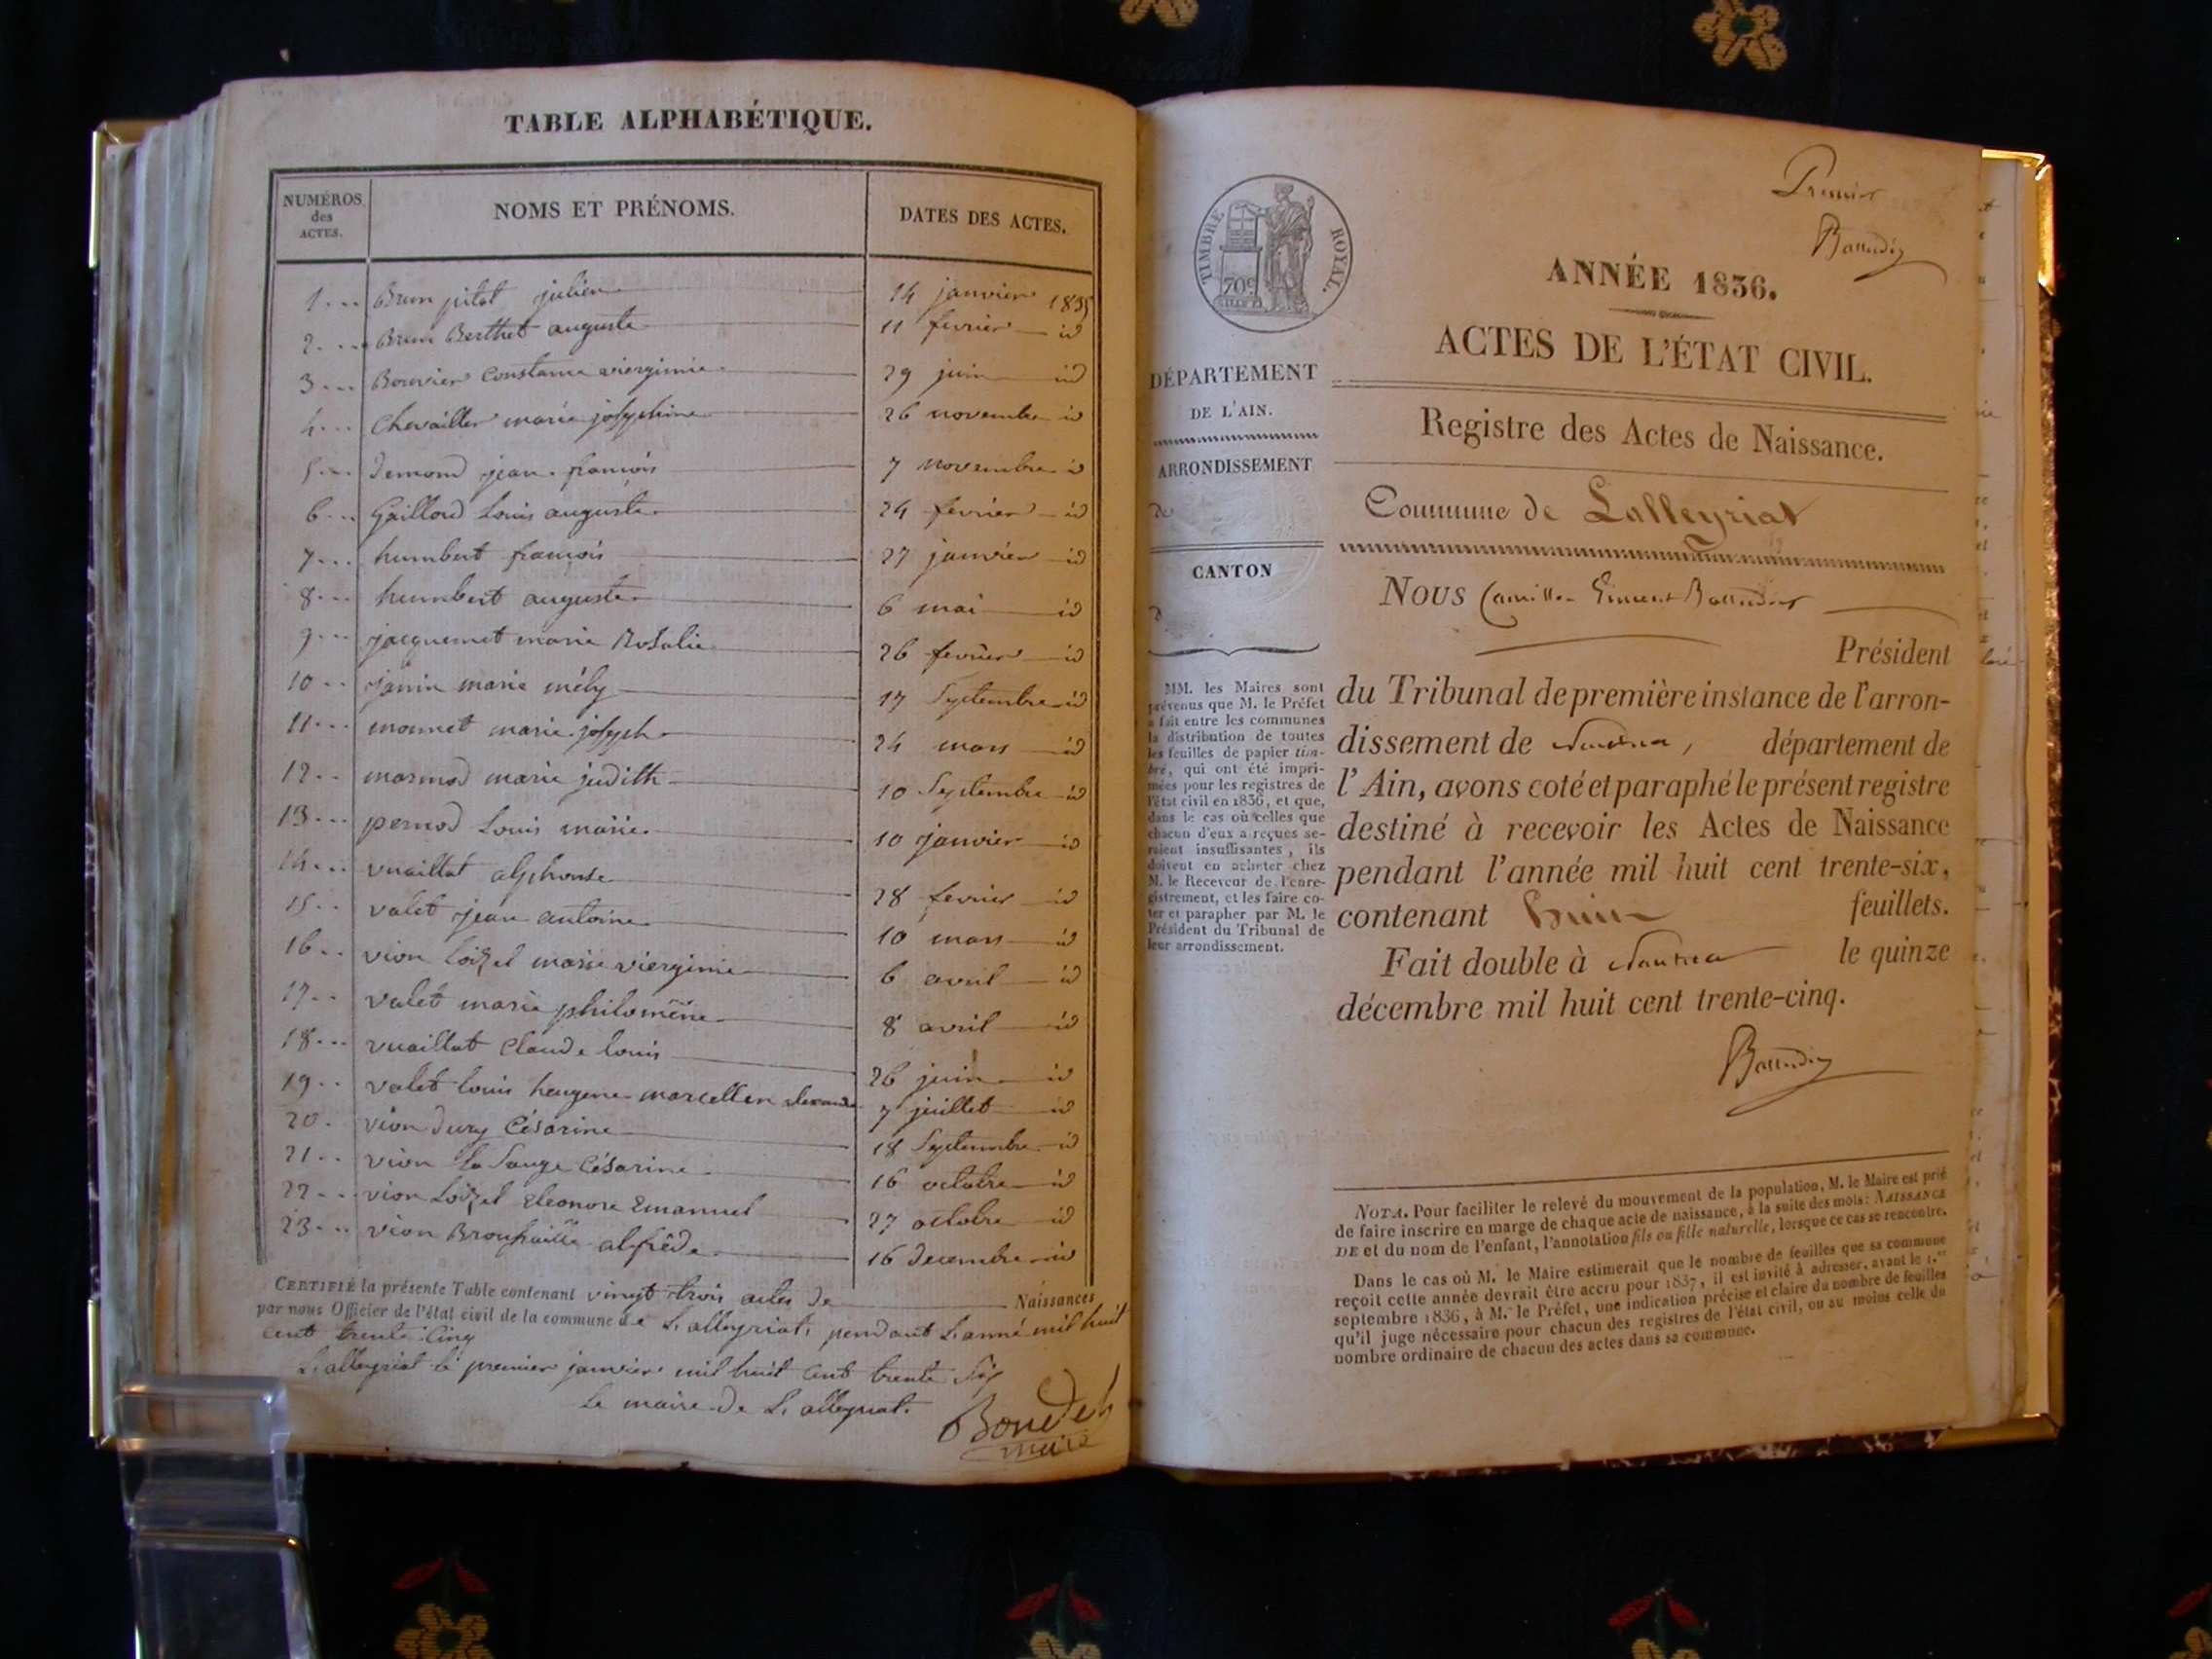 TABLE ALPHABÉTIQUE.
NUMÉROS des ACTES. NOMS ET PRÉNOMS. DATES DES ACTES.
1 Brun pitot julien 14 janvier 1835
2 Brun Berthet auguste 11 fevrier id
3 Bouvier Constance viergimie 29 juin id
4 Chevailler marie josephine 26 novembre id
5 Jean françois 7 novembre id
6 Gaillard Louis auguste 24 fevrier id
7 humbert françois 27 janvier id
8 humbert auguste 6 mai id
9 jacquemet marie Rosalie 26 fevrier id
10 janin marie mély 17 Septembre id
11 monnet marie joseph 24 mars id
12 marmod marie judith 10 Septembre id
13 pernod Louis marie 10 janvier id
14 vuaillat alphonse 28 fevrier id
15 valet jean antoine 10 mars id
16 vion loizel marie viergimie 6 avril id
17 valet marie philomène 8 avril id
18 vuaillat Claude louis 26 juin id
19 valet louis heugene marcellen 7 juillet id
20 vion dury Césarine 18 Septembre id
21 vion la Sauge Césarine 16 octobre id
22 vion Loizel Eleonore Emanuel 27 octobre id
23 vion alfrède 16 decembre id
CERTIFIÉ la présente Table contenant vingt trois actes de Naissances
par nous Officier de l'état civil de la commune de Lalleyriat, pendant L'anné mil huit
cent trente Cinq
Lalleyriat le premier janvier mil huit cent trente Six
Le maire de Lalleyriat.
Boudet
maire
Premier
TIMBRE ROYAL.
70c
DÉPARTEMENT
DE L'AIN.
ARRONDISSEMENT
de
CANTON
d
MM. les Maires sont
prévenus que M. le Préfet
a fait entre les communes
la distribution de toutes
les feuilles de papier tim-
bré, qui ont été impri-
mées pour les registres de
l'état civil en 1836, et que,
dans le cas où celles que
chacun d'eux a reçues se-
raient insuffisantes, ils
doivent en acheter chez
M. le Receveur de l'enre-
gistrement, et les faire co-
ter et parapher par M. le
Président du Tribunal de
leur arrondissement.
ANNÉE 1836.
ACTES DE L'ÉTAT CIVIL.
Registre des Actes de Naissance.
Commune de Lalleyriat
NOUS Camille Vincent
Président
du Tribunal de première instance de l'arron-
dissement de Nantua, département de
l'Ain, avons coté et paraphé le présent registre
destiné à recevoir les Actes de Naissance
pendant l'année mil huit cent trente-six,
contenant huit feuillets.
Fait double à Nantua le quinze
décembre mil huit cent trente-cinq.
NOTA. Pour faciliter le relevé du mouvement de la population, M. le Maire est prié
de faire inscrire en marge de chaque acte de naissance, à la suite des mots: NAISSANCE
DE et du nom de l'enfant, l'annotation fils ou fille naturelle, lorsque ce cas se rencontre.
Dans le cas où M. le Maire estimerait que le nombre de feuilles que sa commune
reçoit cette année devrait être accru pour 1837, il est invité à adresser, avant le 1.er
septembre 1836, à M. le Préfet, une indication précise et claire du nombre de feuilles
qu'il juge nécessaire pour chacun des registres de l'état civil, ou au moins celle du
nombre ordinaire de chacun des actes dans sa commune.